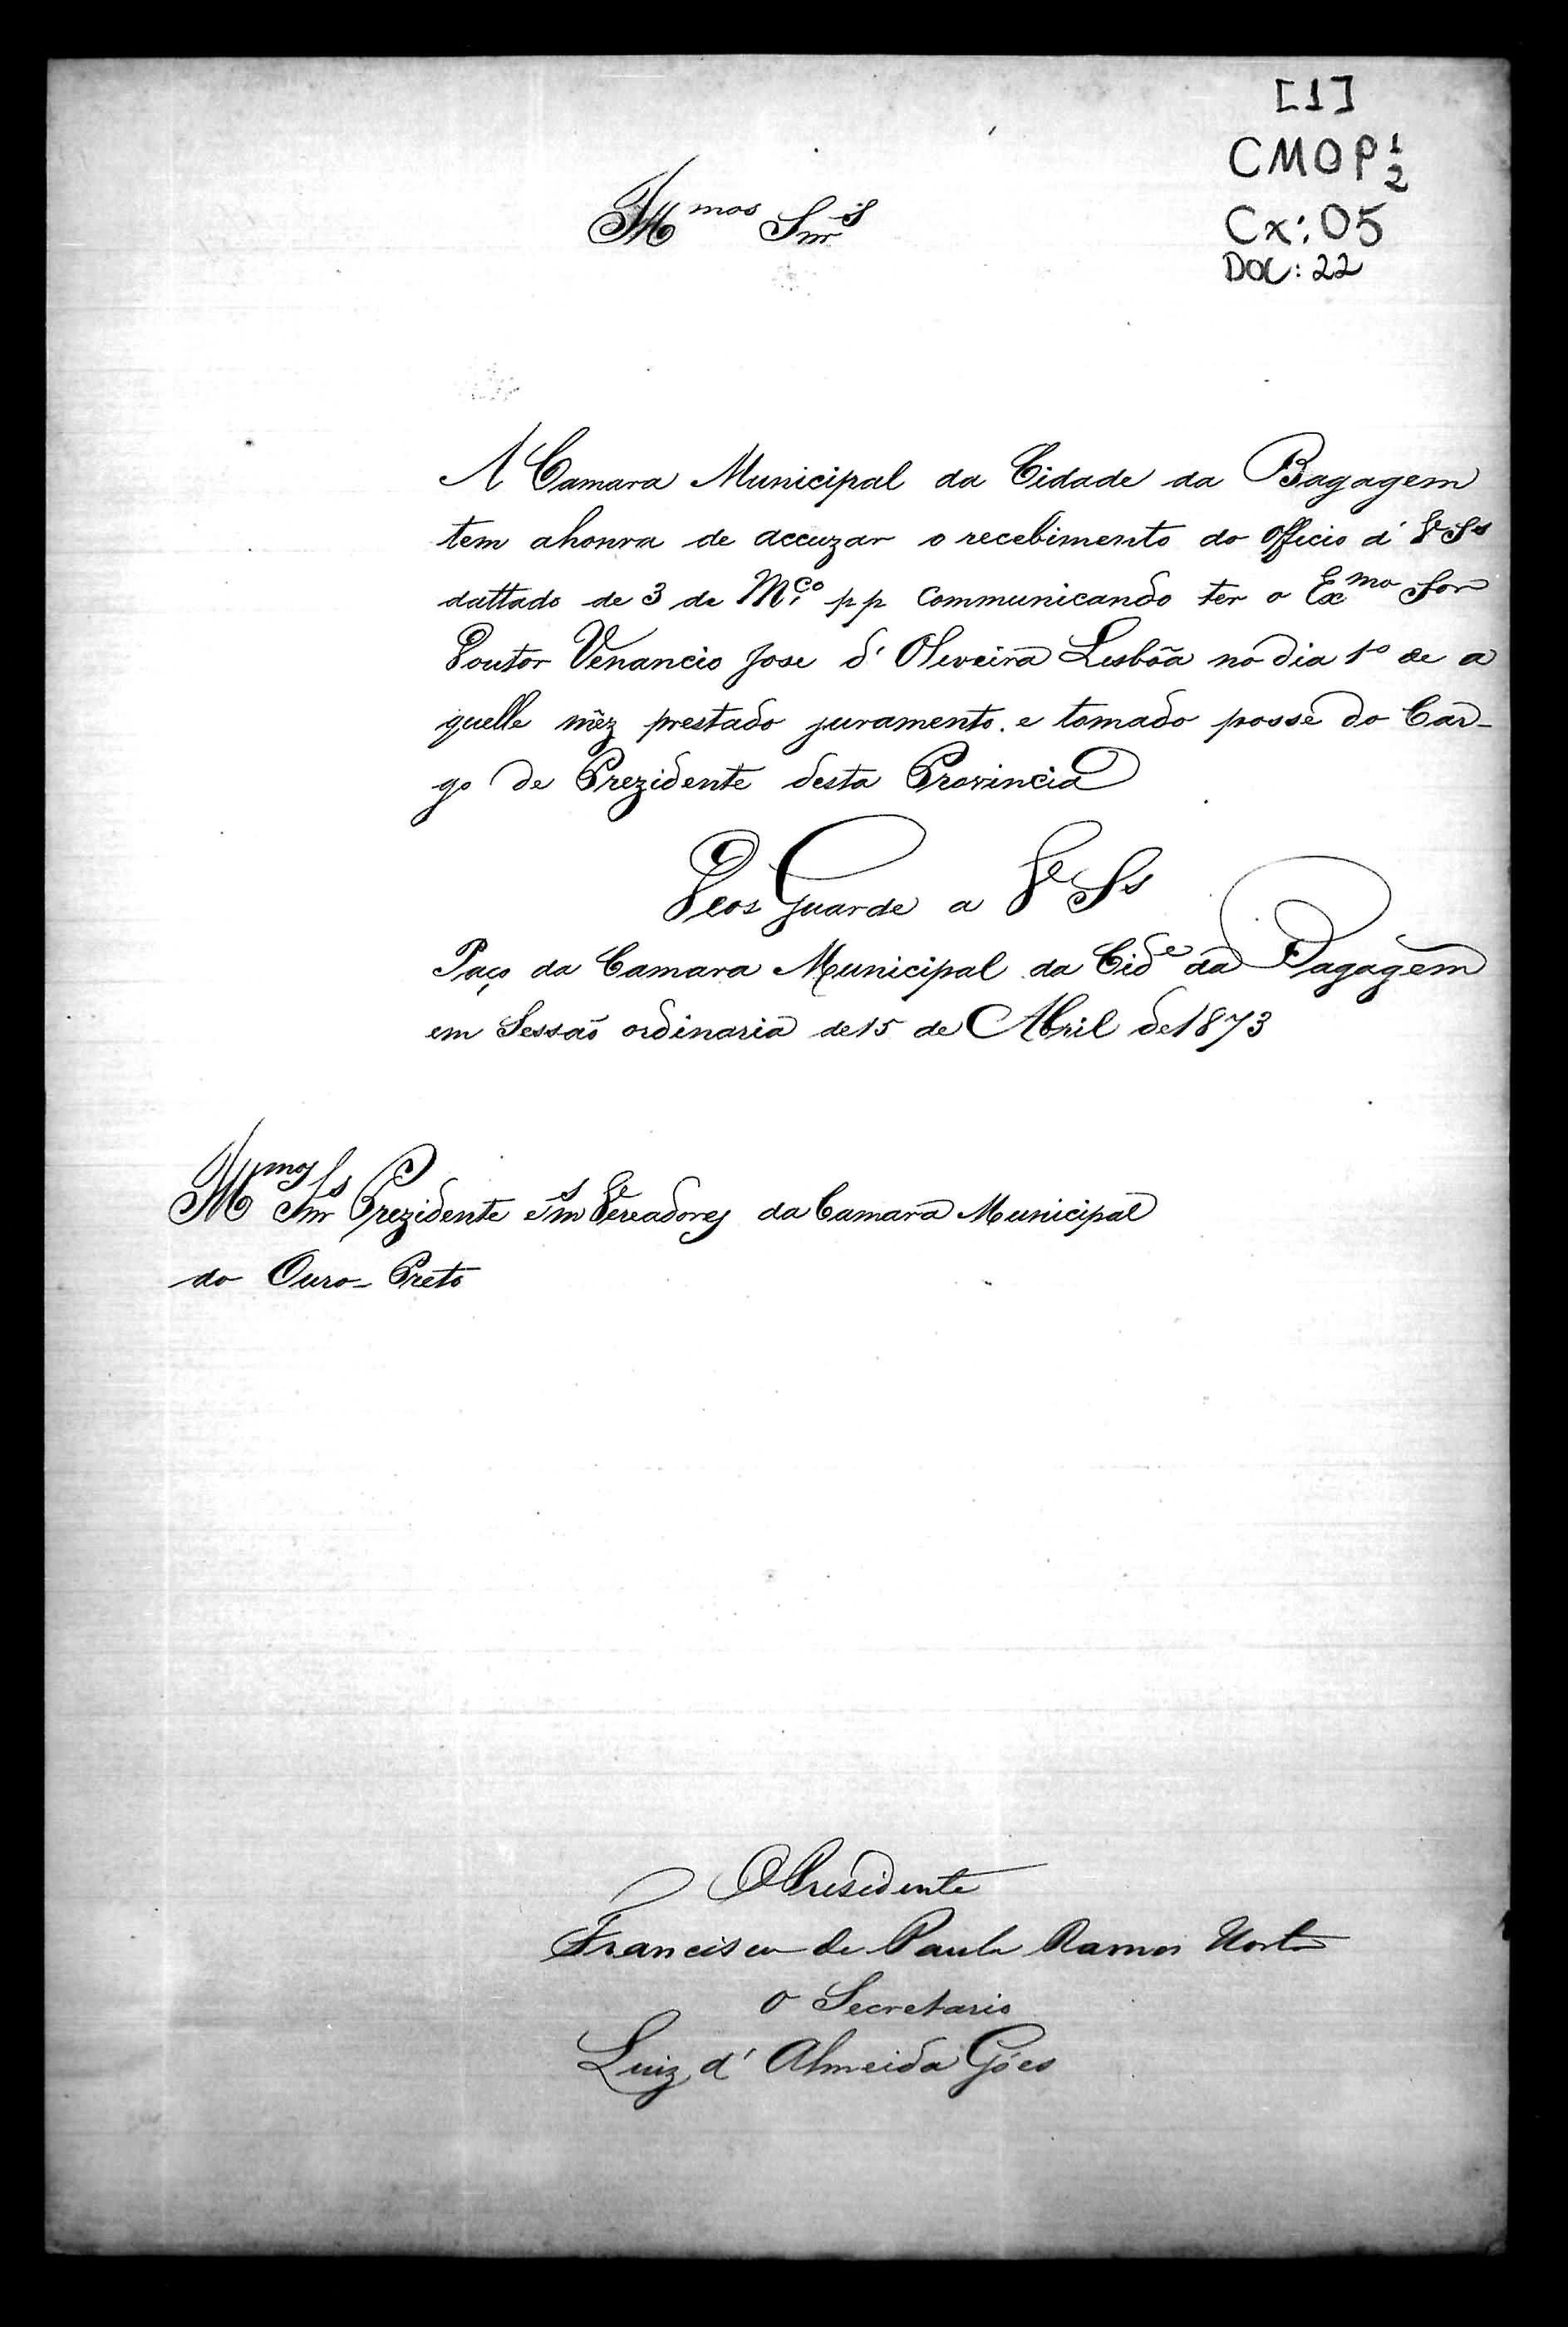 [1]
CMOP 1/2
Cx: 05
DOC: 22
Illmos Snrs
A Camara Municipal da Cidade da Bagagem
tem ahonra de accuzar o recebimento do Officio d' VSªs
dattado de 3 de Mço pp Communicando ter o Exmo Snr
Doutor Venancio Jose d' Oliveira Lisbôa no dia 1º de a
quelle mêz prestado juramento. e tomado posse do Car-
go de Prezidente desta Provincia
Deos Guarde a VSs
Paço da Camara Municipal da Cide da Bagagem
em Sessão ordinaria de 15 de Abril de 1873
Illmos Snrs Prezidente e Vereadores da Camara Municipal
do Ouro-Preto
O Presidente
Francisco de Paula Ramos Horta
O Secretario
Luiz d' Almeida Góes